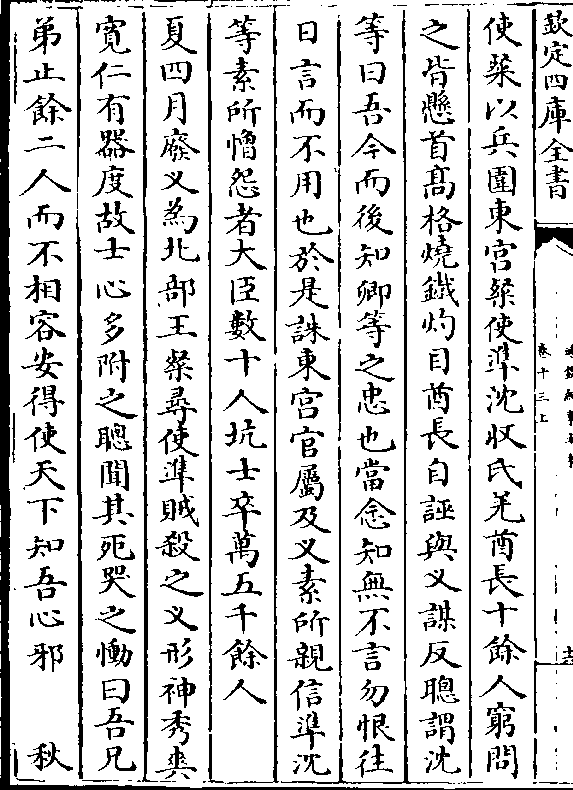 欽定四庫全書
卷十三上
使粲以兵圍東宮粲使準沈收氐羌酋長十餘人窮問
之皆懸首髙格燒鐵灼目酋長自誣與乂謀反聰謂沈
等曰吾今而後知卿等之忠也當念知無不言勿恨往
日言而不用也於是誅東宮官屬及乂素所親信準沈
等素所憎怨者大臣數十人坑士卒萬五千餘人
夏四月廢乂為北部王粲尋使準賊殺之乂形神秀爽
寛仁有器度故士心多附之聰聞其死哭之慟曰吾兄
弟止餘二人而不相容安得使天下知吾心邪　秋